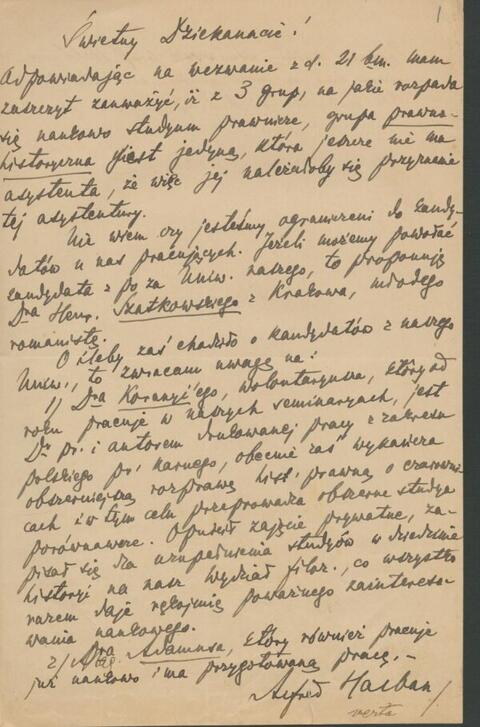 1
Świetny Dziekanacie!
Odpowiadając na wezwanie z d. 21 bm. mam
zaszczyt zauważyć, iż z 3 grup, na jakie rozpada
się naukowo studyum prawnicze, grupa prawno-
historyczna jest jedyną, która jeszcze nie ma
asystenta, że więc jej należałoby się przyznanie
tej asystentury.
Nie wiem czy jesteśmy ograniczeni do kandy-
datów u nas pracujących. Jeżeli możemy powołać
kandydata z poza Uniw. naszego, to proponuję
Dra Henr. Szatkowskiego z Krakowa, młodego
romanistę.
O ileby zaś chodziło o kandydatów z naszego
Uniw., to zwracam uwagę na:
1) Dra Koranyi'ego, wolontaryusza, który od
roku pracuje w naszych seminaryach, jest
Dr pr. i autorem drukowanej pracy z zakresu
polskiego pr. karnego, obecnie zaś wykańcza
obszerniejszą rozprawę hist. prawną o czarowni
cach i w tym celu przeprowadza obszerne studya
porównawcze. Opuścił zajęcie prywatne, za-
pisał się dla uzupełnienia studyów w dziedzinie
historyi na nasz wydział filoz., co wszystko
razem daje rękojmię poważnego zaintereso-
wania naukowego.
2/ Dra Adamusa, który również pracuje
już naukowo i ma przygotowaną pracę. -
Alfred Halban/
verte